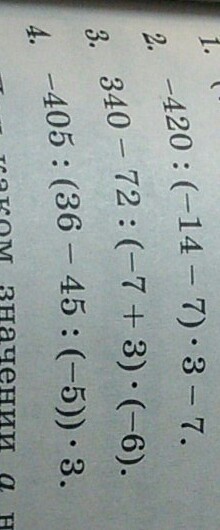 1. (
2. -420 : (-14 - 7) · 3 - 7.
3. 340 - 72 : (-7 + 3) · (-6).
4. -405 : (36 - 45 : (-5)) · 3.
каком значении a